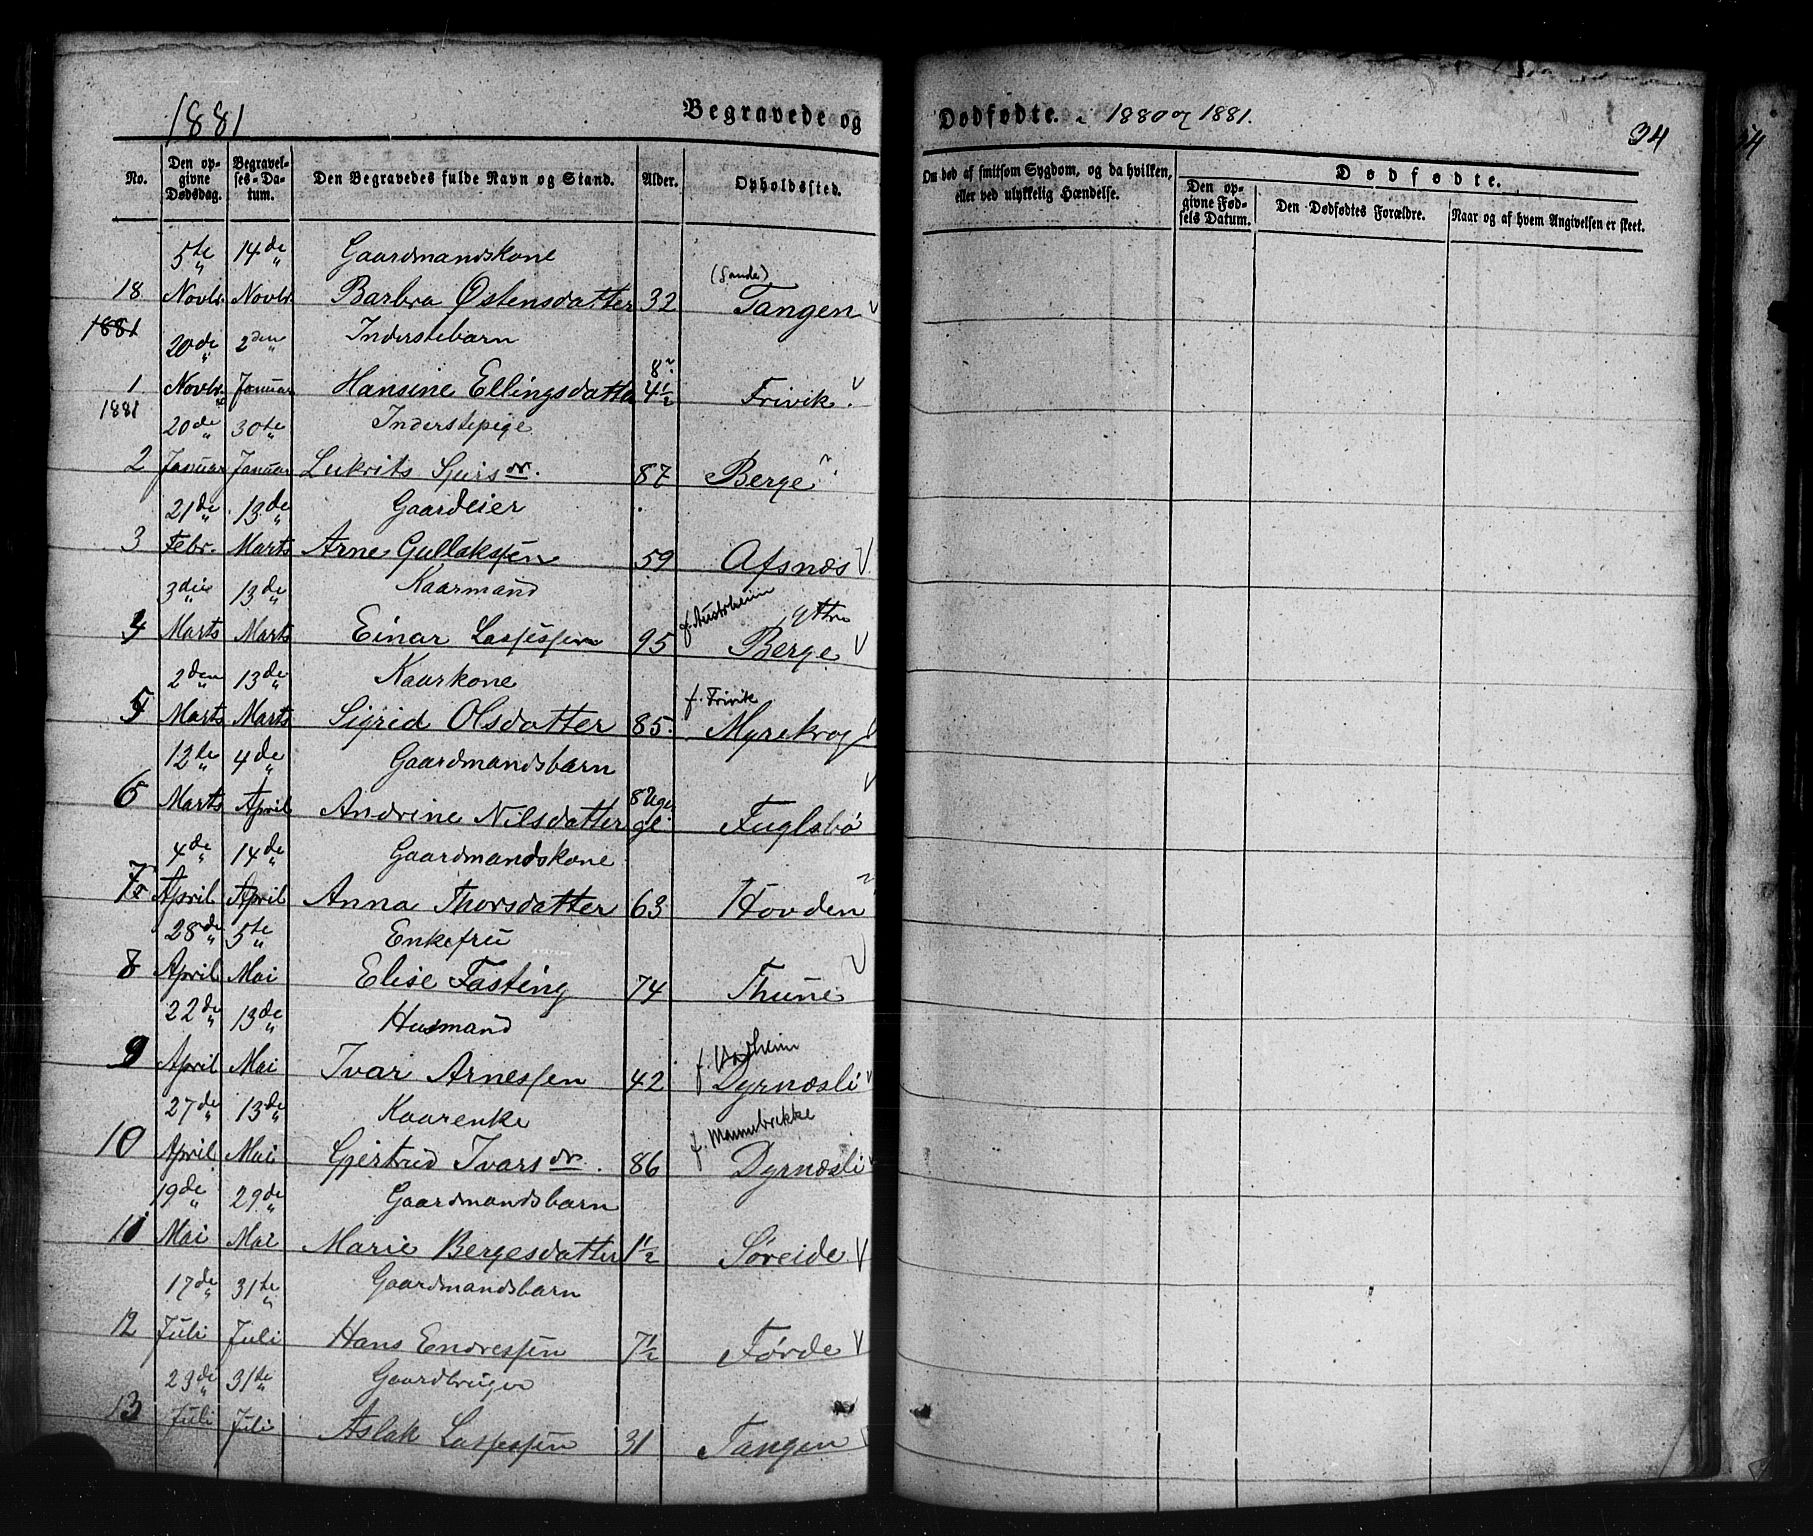 1881
Begravede og Dødfødte. 1880 og 1881.
34
No.
Den opgivne Dødsdag.
Begravelses-Datum.
Den Begravedes fulde Navn og Stand.
Alder.
Opholdssted.
Om død af smitsom Sygdom, og da hvilken, eller ved ulykkelig Hændelse.
Dødfødte.
Den opgivne Fødsels Datum.
Den Dødfødtes Forældre.
Naar og af hvem Angivelsen er skeet.
5te 14de Gaardmandskone (Sande)
18 Novbr Novbr Barbra Østensdatter 32 Tangen
1881
20de 2den Inderstebarn
1 Novbr Januar Hansine Ellingsdatter 4½ Frivik
1881
20de 30te Inderstepige
2 Januar Januar Sjursdr. 87 Berge
21de 13de Gaardeier
3 Febr. Marts Arne Gullakssen 59 Afsnæs
3die 13de Kaarmand f. Austrheim ytre
4 Marts Marts Einar Lassessen 95 Berge
2den 13de Kaarkone f. Frivik
5 Marts Marts Sigrid Olsdatter 85. Myrekrog
12te 4de Gaardmandsbarn
6 Marts April Andrine Nilsdatter 8 Uger Fuglsbø
4de 14de Gaardmandskone
7 April April Anna Thorsdatter 63 Hovden
28de 5te Enkefru
8 April Mai Elise Fasting 74 Thune
22de 13de Husmand f. Vadheim
9 April Mai Ivar Arnessen 42 Dyrnæsli
27de 13de Kaarenke f. Mannebrekke
10 April Mai Gjertrud Ivarsdr. 86 Dyrnæsli
19de 29de Gaardmandsbarn
11 Mai Mai Marie Bergesdatter 1½ Søreide
17de 31te Gaardmandsbarn
12 Juli Juli Hans Endressen 7½ Førde
23de 31te Gaardbruger
13 Juli Juli Aslak Lassessen 31 Tangen